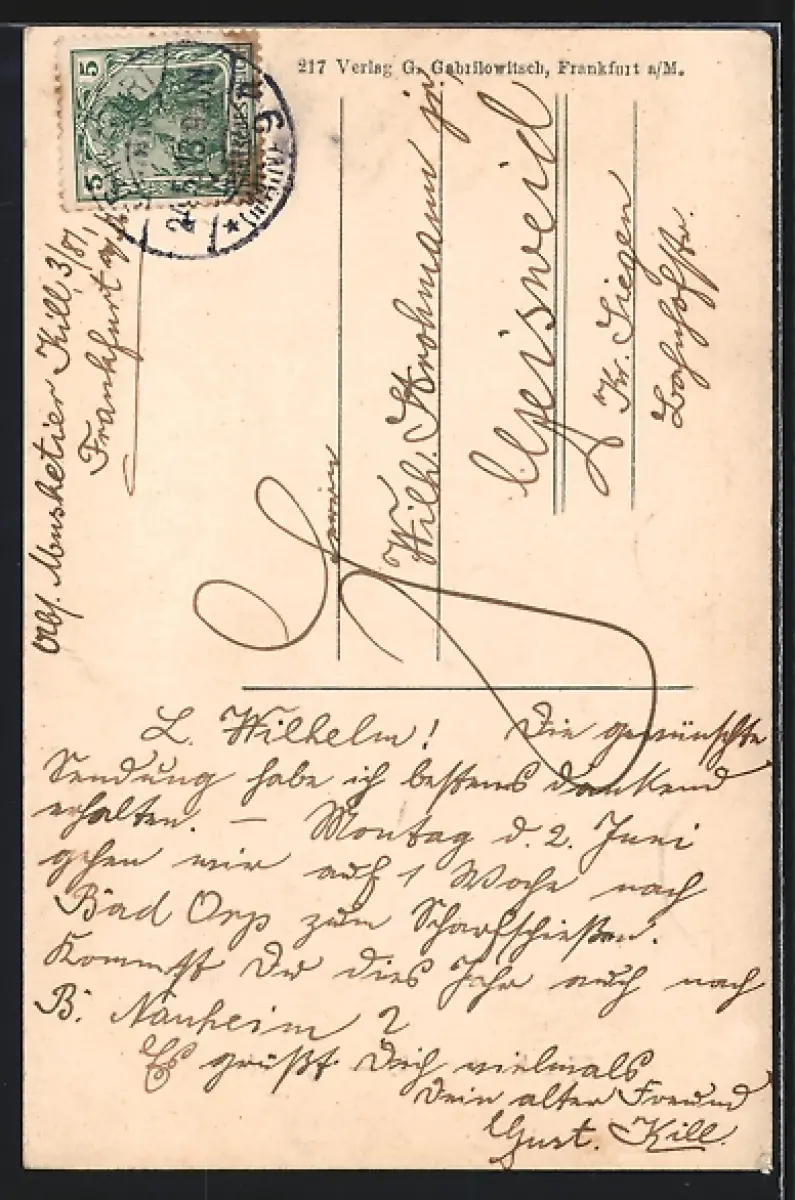 217 Verlag G. Gabrilowitsch, Frankfurt a/M.
5
5
24.5.13.9
Abs. Musketier Kill, 3/81,
Frankfurt a/M
Herrn
Wilh. Strohmann jr.
Geisweid
Kr. Siegen
Bahnhofstr.
L. Wilhelm! Die gewünschte
Sendung habe ich bestens dankend
erhalten. – Montag d. 2. Juni
gehen wir auf 1 Woche nach
Bad Orp zum Scharfschießen.
Kommst Du dies Jahr auch nach
B. Nauheim?
Es grüßt Dich vielmals
Dein alter Freund
Gust. Kill.